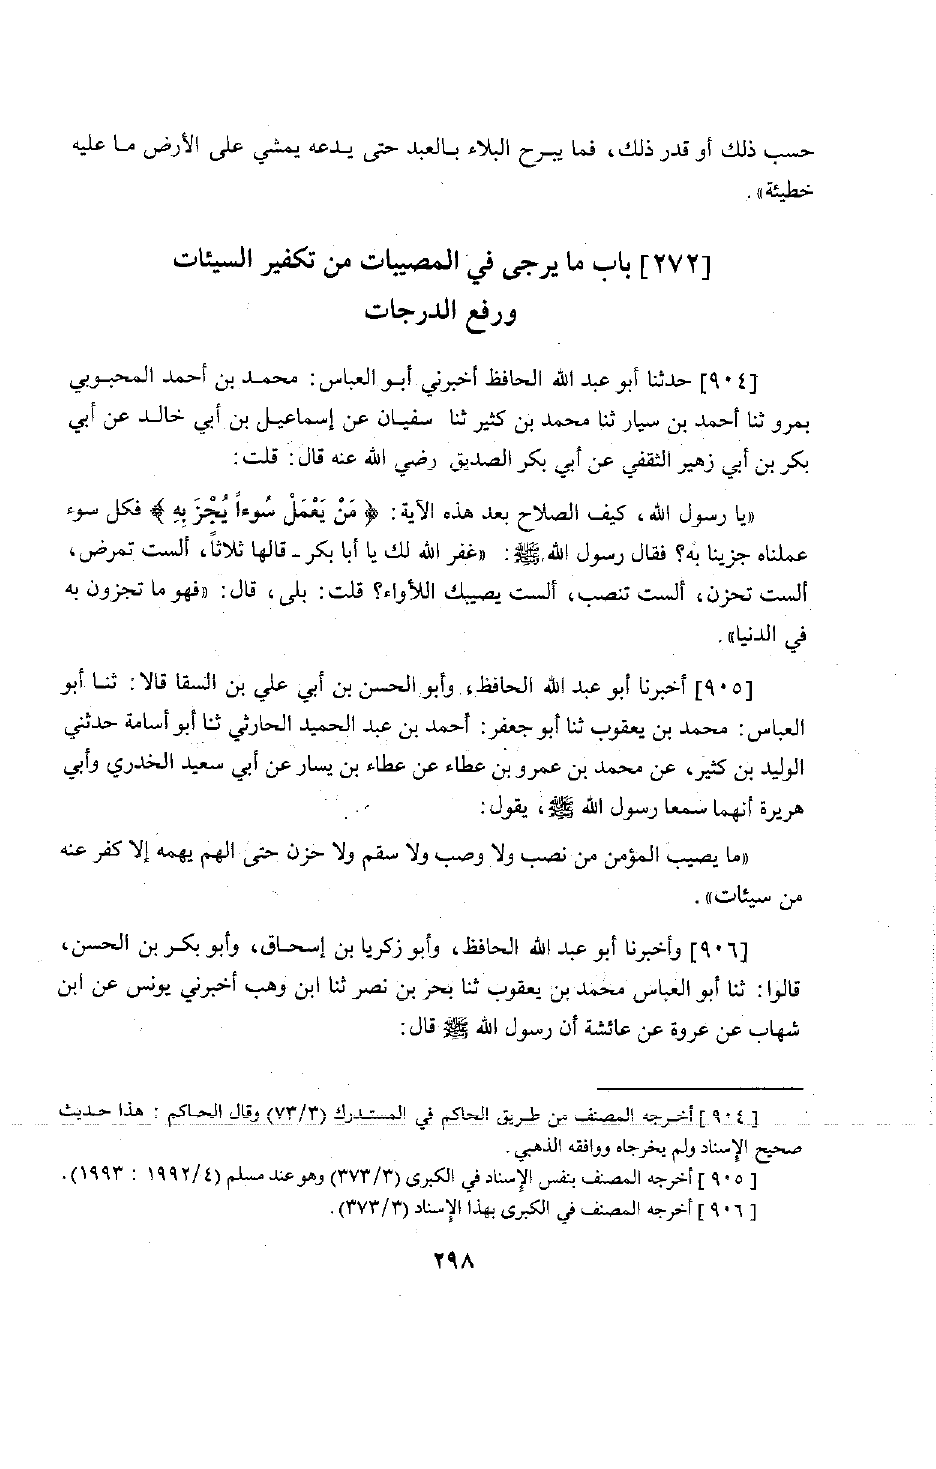 حسب ذلك أو قدر ذلك، فما يبرح البلاء بالعبد حتى يدعه يمشي على الأرض ما عليه
خطيئة».
[٢٧٢] باب ما يرجى في المصيبات من تكفير السيئات
ورفع الدرجات
[٩٠٤] حدثنا أبو عبد الله الحافظ أخبرني أبو العباس: محمد بن أحمد المحبوبي
بمرو ثنا أحمد بن سيار ثنا محمد بن كثير ثنا سفيان عن إسماعيل بن أبي خالد عن أبي
بكر بن أبي زهير الثقفي عن أبي بكر الصديق رضي الله عنه قال: قلت:
«يا رسول الله، كيف الصلاح بعد هذه الآية: ﴿ مَنْ يَعْمَلْ سُوءاً يُجْزَ بِهِ ﴾ فكل سوء
عملناه جزينا به؟ فقال رسول الله ﷺ: «غفر الله لك يا أبا بكر ـ قالها ثلاثاً، ألست تمرض،
ألست تحزن، ألست تنصب، ألست يصيبك اللأواء؟ قلت: بلى، قال: «فهو ما تجزون به
في الدنيا».
[٩٠٥] أخبرنا أبو عبد الله الحافظ، وأبو الحسن بن أبي علي بن السقا قالا: ثنا أبو
العباس: محمد بن يعقوب ثنا أبو جعفر: أحمد بن عبد الحميد الحارثي ثنا أبو أسامة حدثني
الوليد بن كثير، عن محمد بن عمرو بن عطاء عن عطاء بن يسار عن أبي سعيد الخدري وأبي
هريرة أنهما سمعا رسول الله ﷺ، يقول:
«ما يصيب المؤمن من نصب ولا وصب ولا سقم ولا حزن حتى الهم يهمه إلا كفر عنه
من سيئات».
[٩٠٦] وأخبرنا أبو عبد الله الحافظ، وأبو زكريا بن إسحاق، وأبو بكر بن الحسن،
قالوا: ثنا أبو العباس محمد بن يعقوب ثنا بحر بن نصر ثنا ابن وهب أخبرني يونس عن ابن
شهاب عن عروة عن عائشة أن رسول الله ﷺ قال:
[٩٠٤] أخرجه المصنف من طريق الحاكم في المستدرك (٧٣/٣) وقال الحاكم : هذا حديث
صحيح الإسناد ولم يخرجاه ووافقه الذهبي.
[٩٠٥] أخرجه المصنف بنفس الإسناد في الكبرى (٣٧٣/٣) وهو عند مسلم (١٩٩٢/٤ : ١٩٩٣).
[٩٠٦] أخرجه المصنف في الكبرى بهذا الإسناد (٣٧٣/٣).
٢٩٨